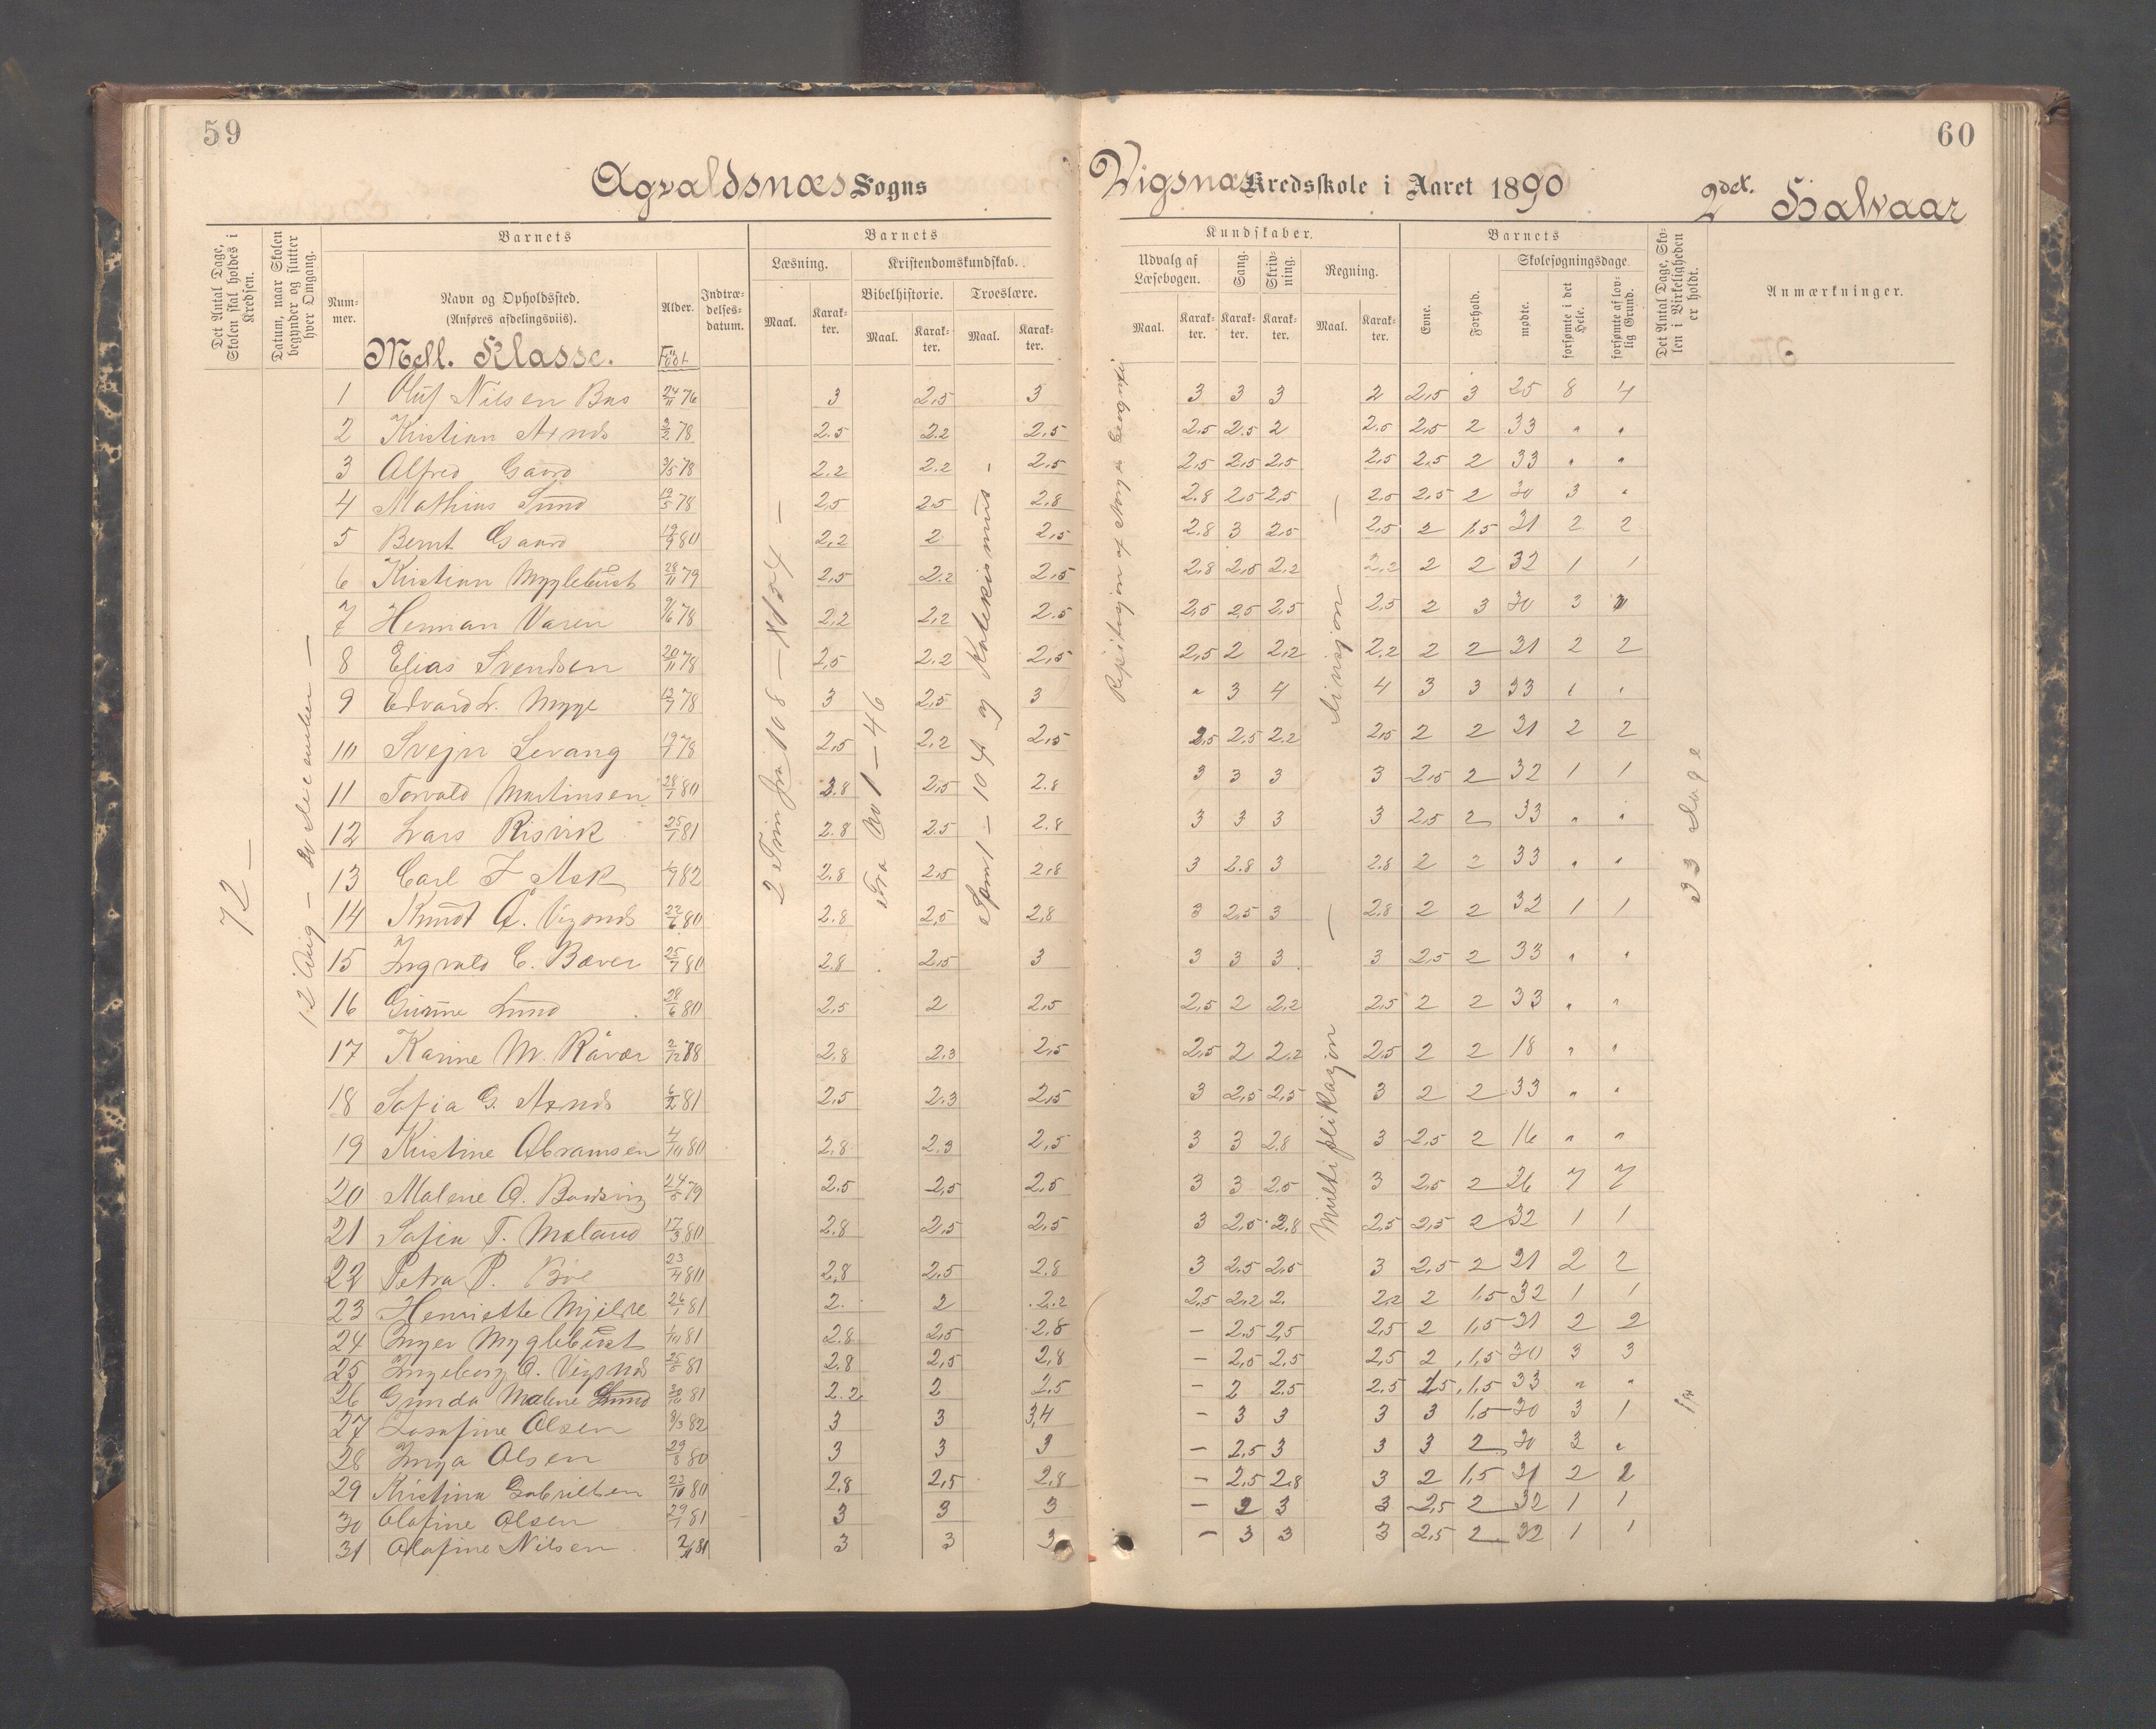 59
60
Agvaldsnæs Sogns
Vigsnæs Kredsskole i Aaret 1890
2det. Halvaar
Det Antal Dage, Skolen skal holdes i Kredsen.
Datum, naar Skolen begynder og slutter hver Omgang.
Barnets
Num-
mer.
Navn og Opholdssted.
(Anføres afdelingsviis).
Alder.
Indtræ-
delses-
datum.
Barnets
Læsning.
Maal.
Karak-
ter.
Kristendomskundskab.
Bibelhistorie.
Maal.
Karak-
ter.
Troeslære.
Maal.
Karak-
ter.
Kundskaber.
Udvalg af
Læsebogen.
Maal.
Karak-
ter.
Sang.
Karak-
ter.
Skriv-
ning.
Karak-
ter.
Regning.
Maal.
Karak-
ter.
Barnets
Evne.
Forhold.
Skolesøgningsdage
mødte.
forsømte i det Hele.
forsømte af lov-
lig Grund.
Det Antal Dage, Sko-
len i Virkeligheden
er holdt.
Anmærkninger.
Mell. Klasse.
72 –
12 Aug –
fra 108 –
Fra No 1 – 46
1 – 104 og Katekismus
Repitisjon af Norges Geografi
Multiplikasjon – Divisjon –
33 Dage
1 Oluf Nilsen 24/11 76 3 2,5 3 3 3 3 2 2,5 3 25 8 4
2 Kristian 3/2 78 2.5 2.2 2,5 2,5 2.5 2 2.5 2,5 2 33 " "
3 Alfred Gaard 9/5 78 2.2 2.2 2,5 2,5 2,5 2,5 2,5 2,5 2 33 " "
4 Mathias Lund 19/5 78 2,5 2,5 2,8 2.8 2,5 2,5 2,5 2,5 2 30 3 "
5 Bernt Gaard 19/9 80 2,2 2 2,5 2.8 3 2,5 2,5 2 1,5 31 2 2
6 Kristian Mygleburst 28/11 79 2,5 2.2 2,5 2,8 2,5 2,2 2,2 2 2 32 1 1
7 Herman Varen 9/6 78 2,2 2,2 2.5 2,5 2,5 2,5 2,5 2 3 30 3
8 Elias Svendsen 20/11 78 2,5 2.2 2,5 2,5 2 2,2 2.2 2 2 31 2 2
9 Edvard L. Myge 12/9 78 3 2,5 3 " 3 4 4 3 3 33 " "
10 Svejn Levang 19/7 78 2,5 2,2 2,5 2,5 2.5 2.2 2,5 2 2 31 2 2
11 Torvald Martinsen 28/7 80 2.8 2,5 2.8 3 3 3 3 2,5 2 32 1 1
12 Lars Risvik 25/1 81 2.8 2.5 2.8 3 3 3 3 2,5 2 33 " "
13 Carl I Ask 82 2.8 2,5 2,8 3 2.8 3 2.8 2 2 33 " "
14 Knudt A. Vigsnæs 22/6 80 2.8 2,5 2,8 3 2,5 3 2.8 2 2 32 1 1
15 Ingvald C. Bæver 25/7 80 2.8 2,5 3 3 3 3 3 2,5 2 33 " "
16 Gunne Lund 28/6 80 2,5 2 2,5 2,5 2 2,2 2,5 2 2 33 " "
17 Karine M. Røvær 2/12 78 2.8 2.3 2,5 2,5 2 2,2 2,5 2 2 18 " "
18 Sofia G. 6/2 81 2,5 2.3 2,5 3 2,5 2,5 3 2 2 33 " "
19 Kristine Abramsen 4/10 80 2.8 2.3 2,5 3 3 2.8 3 2,5 2 16 " "
20 Malene A. 24/5 79 2.5 2,5 2,5 3 3 2.5 3 2,5 2 26 7 7
21 Sofia T. Maland 17/3 80 2.8 2,5 2.5 3 2,5 2.8 2,5 2,5 2 32 1 1
22 Petra P. Boe 23/4 80 2,8 2,5 2.8 3 2,5 2,5 3 2,5 2 31 2 2
23 Henriette Mjelde 26/1 81 2. 2 2.2 2,5 2,2 2. 2,2 2 1,5 32 1 1
24 Inger Mygleburst 1/10 81 2.8 2,5 2.8 – 2.5 2,5 2,5 2 1,5 31 2 2
25 Ingeborg A. Vigsnæs 25/5 81 2.8 2,5 2,8 – 2,5 2,5 2,5 2 1,5 30 3 3
26 Gunda Malene Lund 81 2.2 2 2.5 – 2 2.5 2.5 1,5 33 " "
27 Josafine Olsen 9/3 82 3 3 3,4 – 3 3 3 3 1,5 30 3 1
28 Inga Olsen 29/8 80 3 3 3 – 2,5 3 3 3 2 30 3 "
29 Kristina Gabrielsen 23/10 80 2.8 2,5 2,8 – 2,5 2,8 3 2 1,5 31 2 2
30 Olafine Olsen 29/1 81 3 3 3 – 2 3 3 2,5 2 32 1 1
31 Olafine Nilsen 81 3 3 3 – 3 3 3 2,5 2 32 1 1